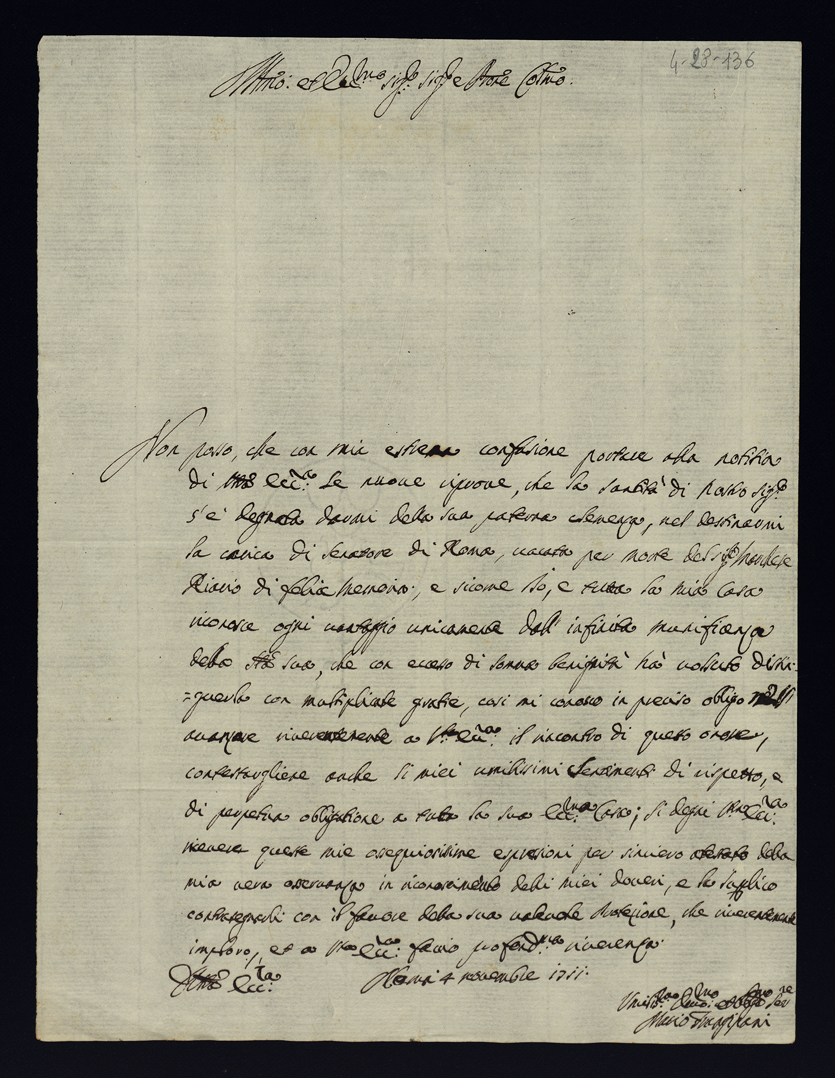 4-28-136
Ill.mo et Ecc.mo Sig.r Sig.r e P̃rone Col.mo
Non posso, che con mia estrema confusione portare alla notitia
di V̄ra Ecc.za le nuove riprove, che la Santità di Nostro Sig.re
s'è degnata darmi della sua paterna clemenza, nel destinarmi
la carica di Senatore di Roma, vacata per morte del Sig.r Marchese
Riario di felice memoria, e sicome Io, e tutta la mia Casa
riconosce ogni vantaggio unicamente dall'infinita munificenza
della Stà sua, che con eccesso di somma benignità hà voluto distin=
=guerla con multiplicate gratie, così mi conosco in preciso obligo
avanzare riverentemente a V.ra Ecc.za il rincontro di questo onore,
contestargliene anche li miei umilissimi sentimenti di rispetto, e
di perpetua obligatione a tutta la sua Ecc.ma Casa; si degni V.ra Ecc.za
ricevere queste mie ossequiosissime espressioni per sincero attestato della
mia vera osservanza in riconoscimento delli miei doveri, e la supplico
contrasegnarli con il favore della sua valevole Protezione, che riverentemente
imploro, et a V.ra Ecc.za faccio profond.ma riverenza.
Di V̄ra Ecc.za Roma 4 novembre 1711.
Umiliss.mo Dev.mo et Oblig.mo Ser.re
Mario Frangipani